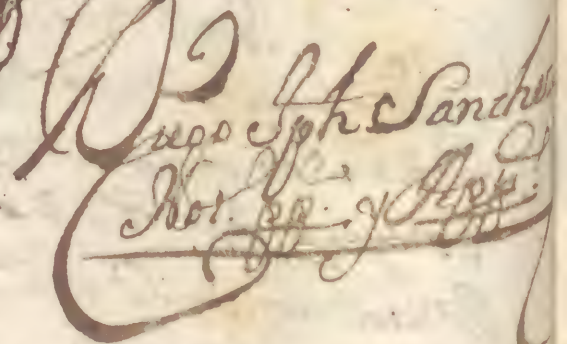 Diego Jph Sanchez
Not. pp. y App.